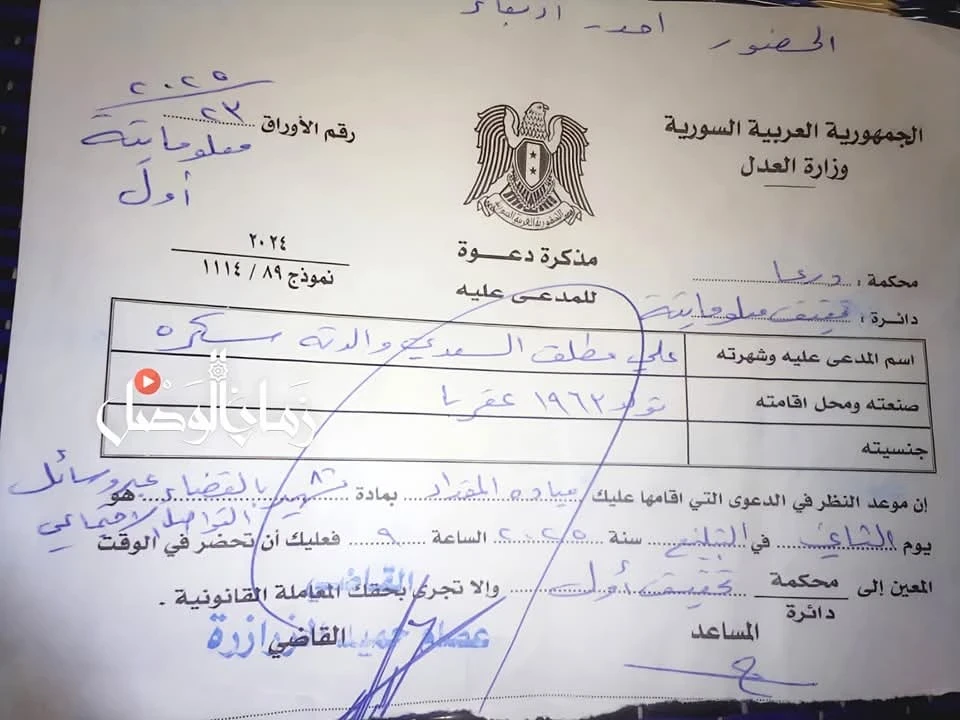 الحضور احد اربعاء
الجمهورية العربية السورية
وزارة العدل
٢٠٢٥
رقم الأوراق ٢٣
معلوماتية
أول
٢٠٢٤
نموذج ٨٩ / ١١١٤
الجمهورية العربية السورية
مذكرة دعـــوة
للمدعى عليه
محكمة : درعا
دائرة : تحقيق معلوماتية
اسم المدعى عليه وشهرته علي مطلق السعدي والدته سكره
صنعته ومحل اقامته تولد ١٩٦٢ عقربا
جنسيته
زمان الوصل
إن موعد النظر في الدعوى التي اقامها عليك ميادة المقداد بمادة تشهير بالقضاء عبر وسائل التواصل الاجتماعي هو
يوم الثاني في التبليغ سنة ٢٠٢٥ الساعة ٩ فعليك أن تحضر في الوقت
المعين إلى محكمة دائرة تحقيق أول وإلا تجرى بحقك المعاملة القانونية .
المساعد القاضي
القاضي
عصام حميد الزرازرة